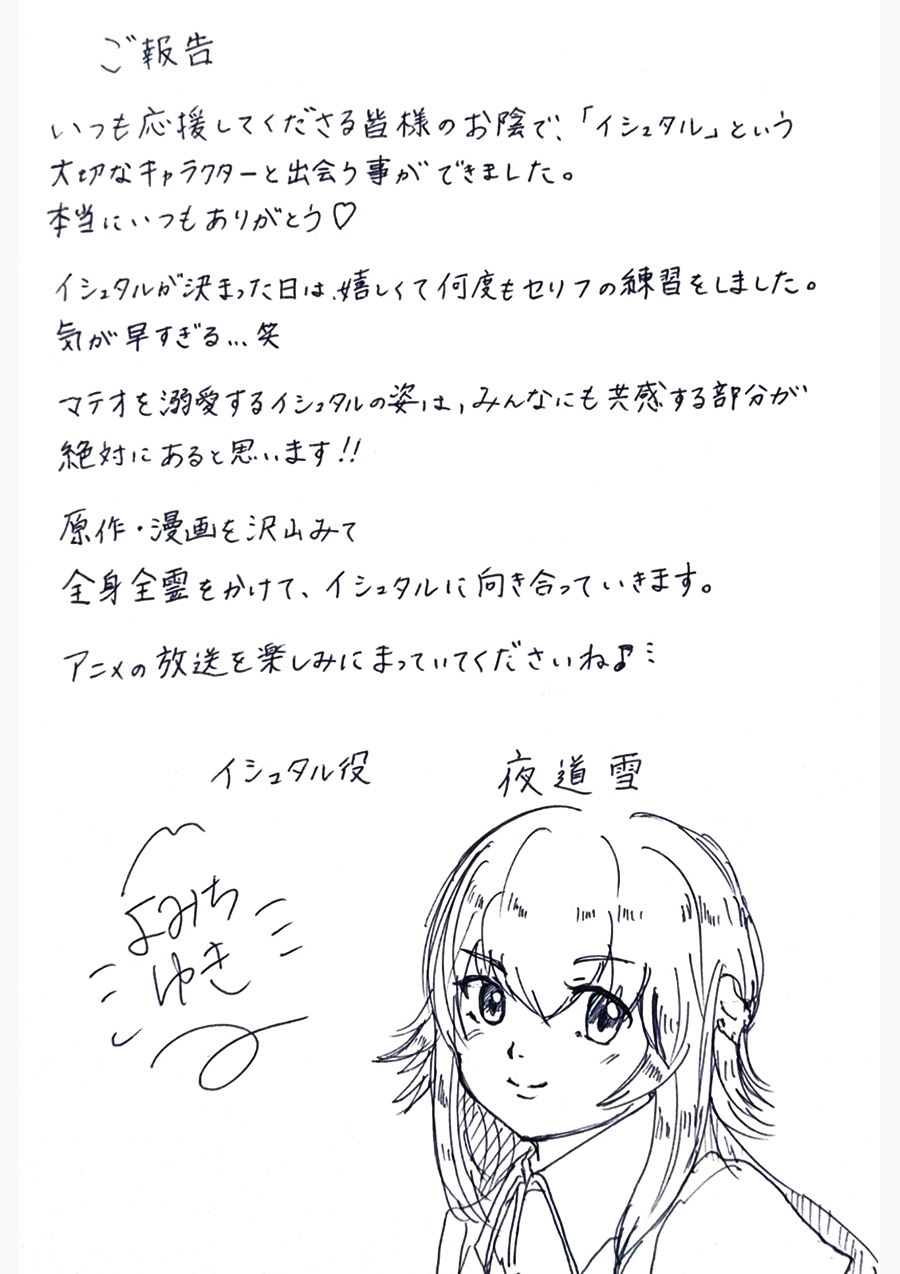 ご報告
いつも応援してくださる皆様のお陰で、「イシュタル」という
大切なキャラクターと出会う事ができました。
本当にいつもありがとう♡
イシュタルが決まった日は、嬉しくて何度もセリフの練習をしました。
気が早すぎる...笑
マテオを溺愛するイシュタルの姿は、みんなにも共感する部分が
絶対にあると思います!!
原作・漫画を沢山みて
全身全霊をかけて、イシュタルに向き合っていきます。
アニメの放送を楽しみにまっていてくださいね♪
イシュタル役 夜道雪
よみち
ゆき